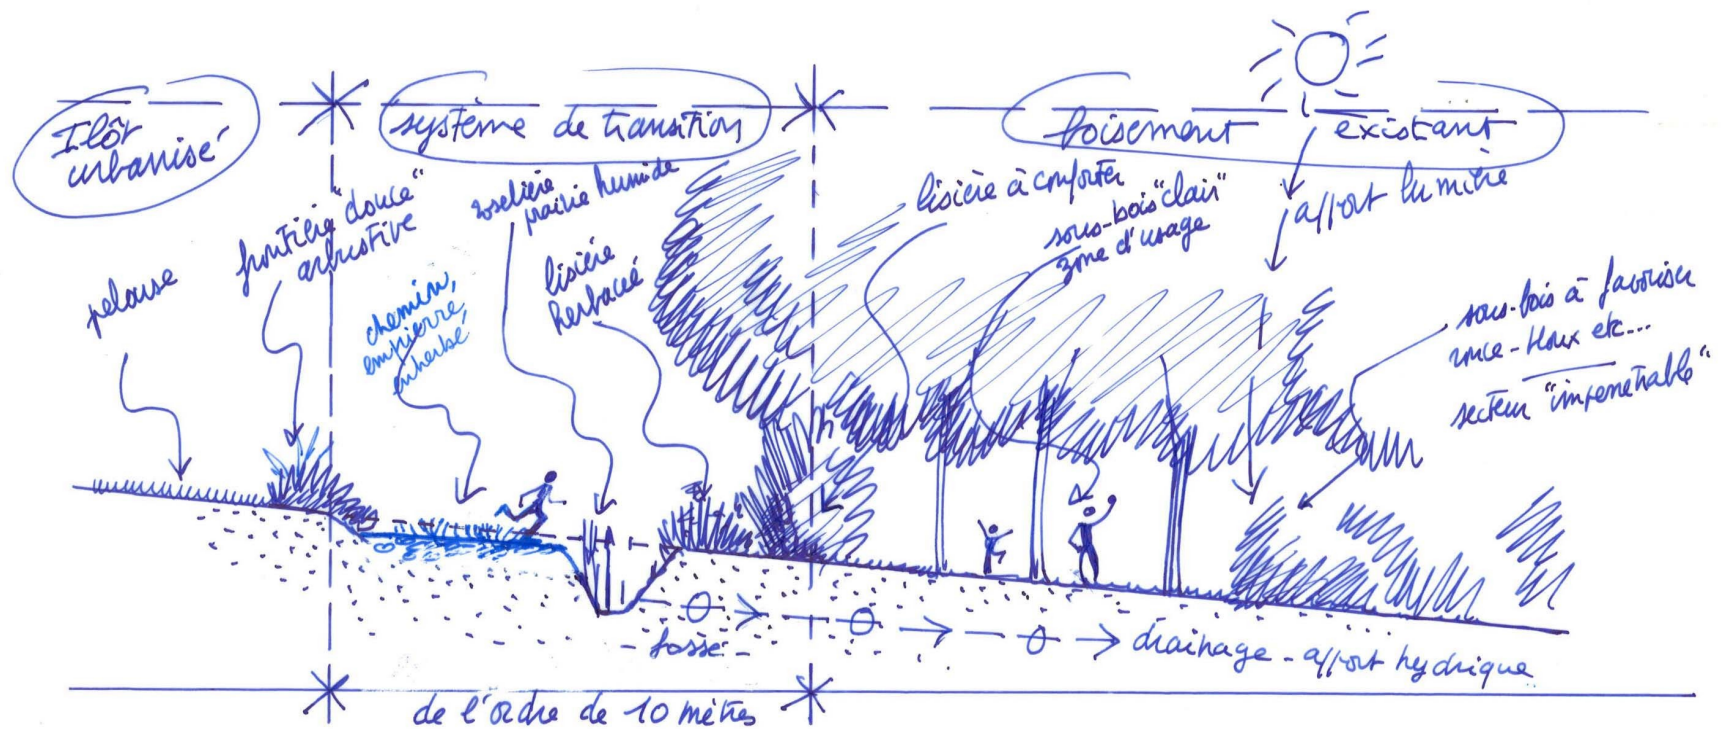 Ilôt
urbanisé
système de transition
boisement existant
apport lumière
pelouse
frontière "douce"
arbustive
chemin,
empierré,
enherbé
roselière
prairie humide
lisière
herbacé
lisière à conforter
sous-bois "clair"
zone d'usage
sous-bois à favoriser
ronce - houx etc...
secteur "impenetrable"
fossé
drainage - apport hydrique
de l'ordre de 10 mètres